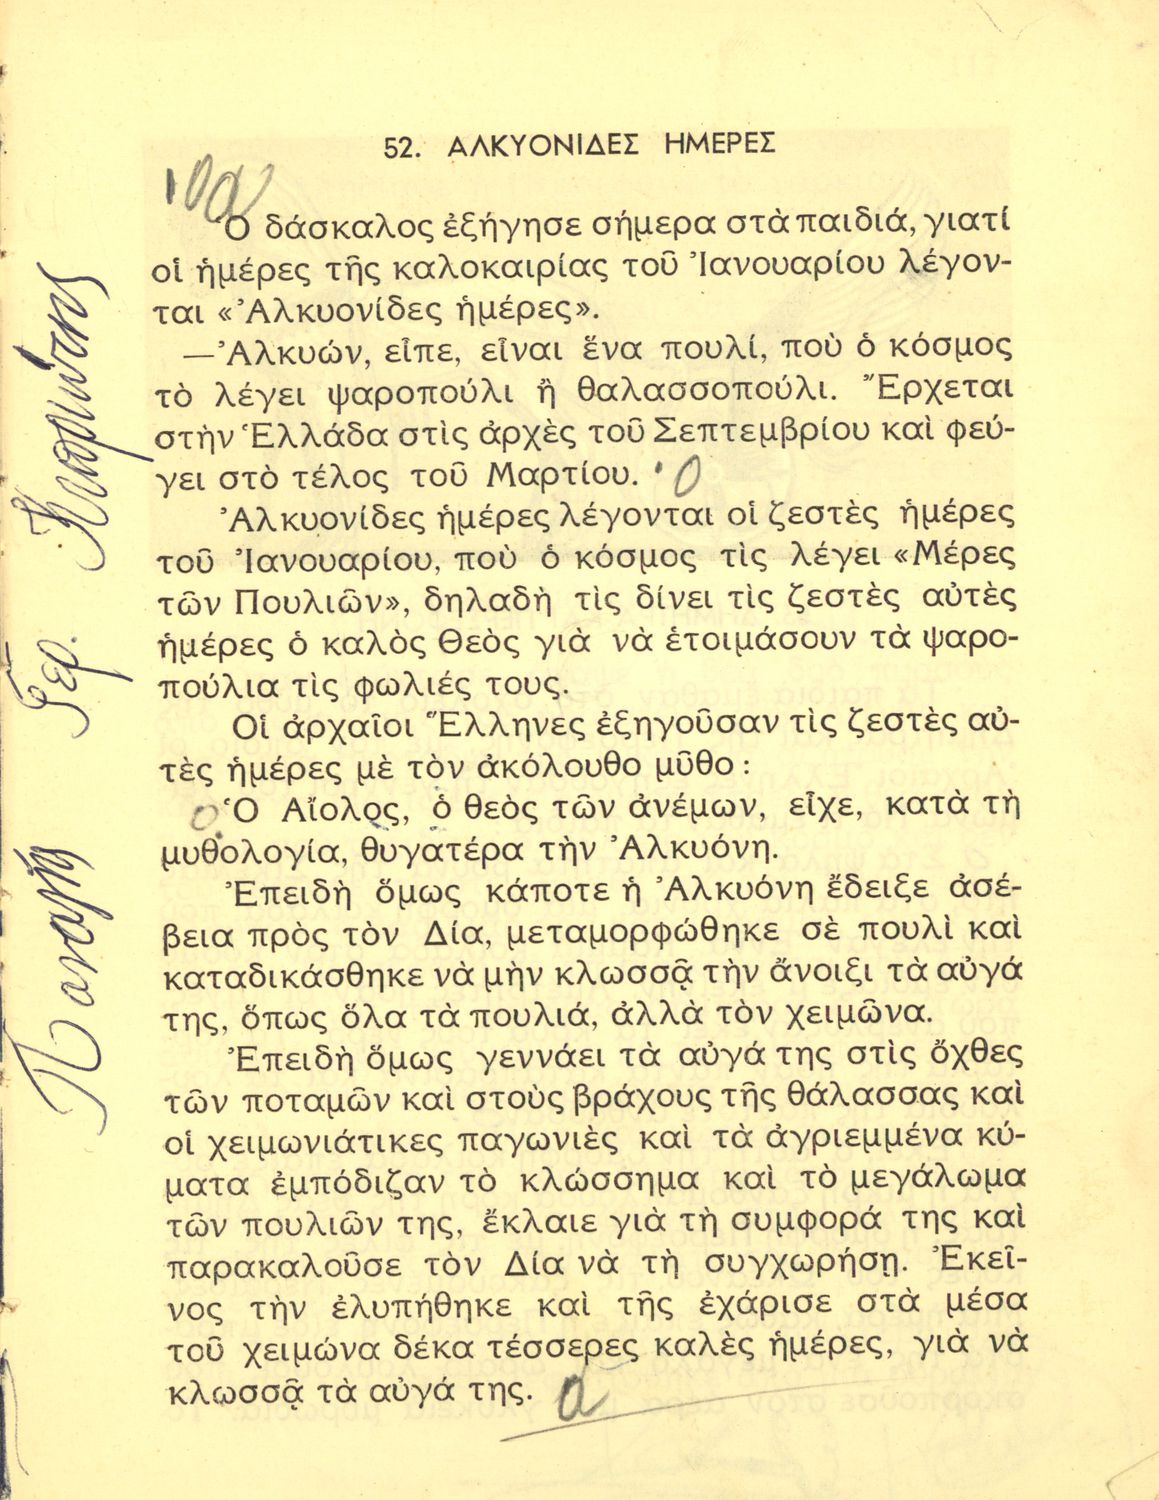 52. ΑΛΚΥΟΝΙΔΕΣ ΗΜΕΡΕΣ
Ὁ δάσκαλος ἐξήγησε σήμερα στὰ παιδιά, γιατί
οἱ ἡμέρες τῆς καλοκαιρίας τοῦ Ἰανουαρίου λέγον-
ται «Ἀλκυονίδες ἡμέρες».
—Ἀλκυών, εἶπε, εἶναι ἕνα πουλί, ποὺ ὁ κόσμος
τὸ λέγει ψαροπούλι ἢ θαλασσοπούλι. Ἔρχεται
στὴν Ἑλλάδα στὶς ἀρχὲς τοῦ Σεπτεμβρίου καὶ φεύ-
γει στὸ τέλος τοῦ Μαρτίου.
Ἀλκυονίδες ἡμέρες λέγονται οἱ ζεστὲς ἡμέρες
τοῦ Ἰανουαρίου, ποὺ ὁ κόσμος τὶς λέγει «Μέρες
τῶν Πουλιῶν», δηλαδὴ τὶς δίνει τὶς ζεστὲς αὐτὲς
ἡμέρες ὁ καλὸς Θεὸς γιὰ νὰ ἑτοιμάσουν τὰ ψαρο-
πούλια τὶς φωλιές τους.
Οἱ ἀρχαῖοι Ἕλληνες ἐξηγοῦσαν τὶς ζεστὲς αὐ-
τὲς ἡμέρες μὲ τὸν ἀκόλουθο μῦθο :
Ὁ Αἴολος, ὁ θεὸς τῶν ἀνέμων, εἶχε, κατὰ τὴ
μυθολογία, θυγατέρα τὴν Ἀλκυόνη.
Ἐπειδὴ ὅμως κάποτε ἡ Ἀλκυόνη ἔδειξε ἀσέ-
βεια πρὸς τὸν Δία, μεταμορφώθηκε σὲ πουλὶ καὶ
καταδικάσθηκε νὰ μὴν κλωσσᾷ τὴν ἄνοιξι τὰ αὐγά
της, ὅπως ὅλα τὰ πουλιά, ἀλλὰ τὸν χειμῶνα.
Ἐπειδὴ ὅμως γεννάει τὰ αὐγά της στὶς ὄχθες
τῶν ποταμῶν καὶ στοὺς βράχους τῆς θάλασσας καὶ
οἱ χειμωνιάτικες παγωνιὲς καὶ τὰ ἀγριεμμένα κύ-
ματα ἐμπόδιζαν τὸ κλώσσημα καὶ τὸ μεγάλωμα
τῶν πουλιῶν της, ἔκλαιε γιὰ τὴ συμφορά της καὶ
παρακαλοῦσε τὸν Δία νὰ τὴ συγχωρήσῃ. Ἐκεῖ-
νος τὴν ἐλυπήθηκε καὶ τῆς ἐχάρισε στὰ μέσα
τοῦ χειμώνα δέκα τέσσερες καλὲς ἡμέρες, γιὰ νὰ
κλωσσᾷ τὰ αὐγά της.
Παναγής Γερ.